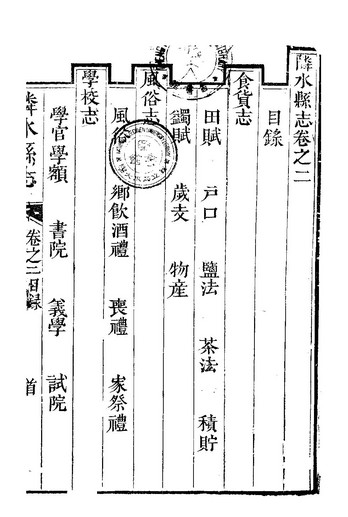 隣水縣志卷之二
目錄
食貨志
田賦 戸口 鹽法 茶法 積貯
蠲賦 歲支 物産
風俗志
風俗 鄉飲酒禮 喪禮 家祭禮
學校志
學官學額 書院 義學 試院
隣水縣志 卷之二目録 首